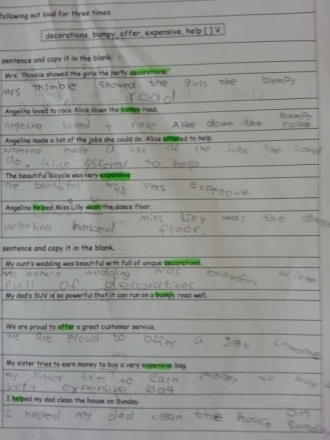 following out loud for three times.
decorations, bumpy, offer, expensive, help [ ] V
sentence and copy it in the blank.
Mrs. Thimble showed the girls the party decorations.
Mrs Thimble showed the girls the bumpy
road
Angelina loved to race Alice down the bumpy road.
Angelina loved to race Alice down the bumpy
road
Angelina made a list of the jobs she could do. Alice offered to help.
made a list of the jobs she could
do. Alice offered to help
The beautiful bicycle was very expensive
The beautiful was very expensive
Angelina helped Miss Lilly wash the dance floor.
miss Lilly was the
Angelina helped floor.
sentence and copy it in the blank.
My aunt's wedding was beautiful with full of unique decorations.
Mi aunt's wedding was
full of
My dad's SUV is so powerful that it can run on a bumpy road well.
We are proud to offer a great customer service.
We are proud to offer a great
My sister tries to earn money to buy a very expensive bag.
My sister tries to earn money to
very expensive bag
I helped my dad clean the house on Sunday.
I helped my dad clean the house on